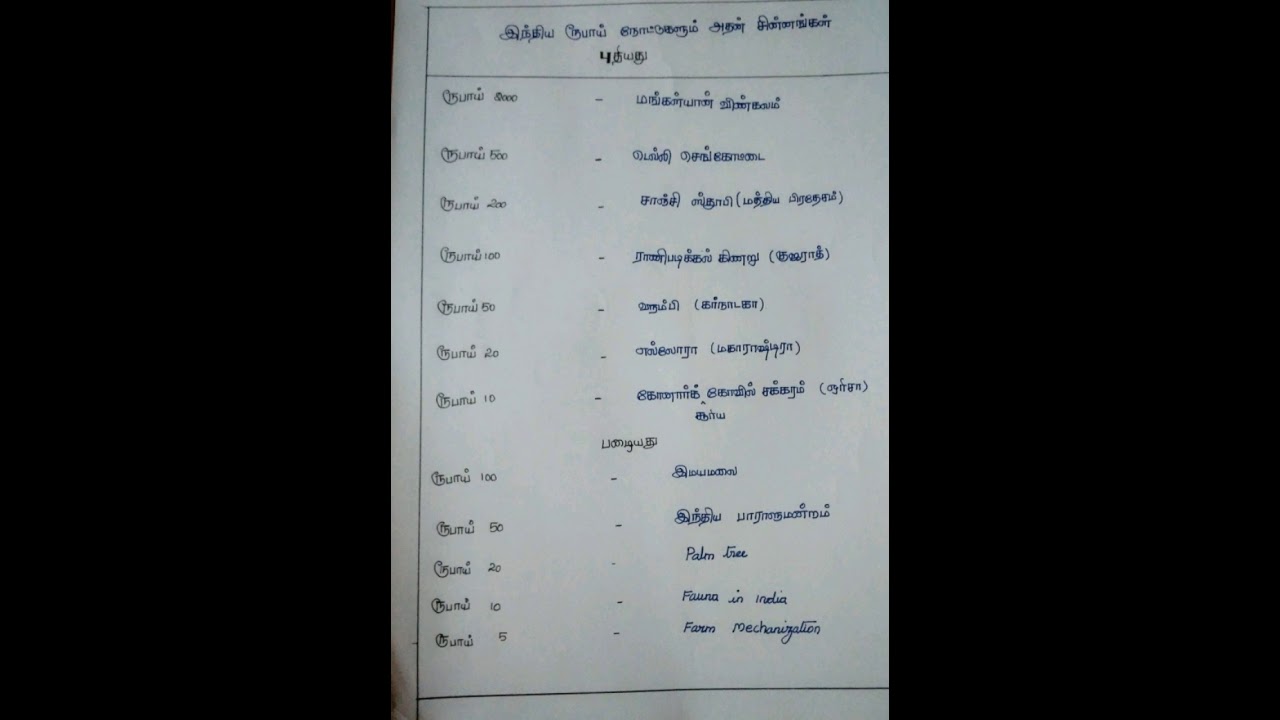 இந்திய ரூபாய் நோட்டுகளும் அதன் சின்னங்கள்
புதியது
ரூபாய் 2000 - மங்கள்யான் விண்கலம்
ரூபாய் 500 - டெல்லி செங்கோட்டை
ரூபாய் 200 - சாஞ்சி ஸ்தூபி (மத்திய பிரதேசம்)
ரூபாய் 100 - ராணிபடிக்கல் கிணறு (குஜராத்)
ரூபாய் 50 - ஹம்பி (கர்நாடகா)
ரூபாய் 20 - எல்லோரா (மகாராஷ்டிரா)
ரூபாய் 10 - கோனார்க் சூர்ய கோவில் சக்கரம் (ஒரிசா)
பழையது
ரூபாய் 100 - இமயமலை
ரூபாய் 50 - இந்திய பாராளுமன்றம்
ரூபாய் 20 - Palm tree
ரூபாய் 10 - Fauna in India
ரூபாய் 5 - Farm Mechanization